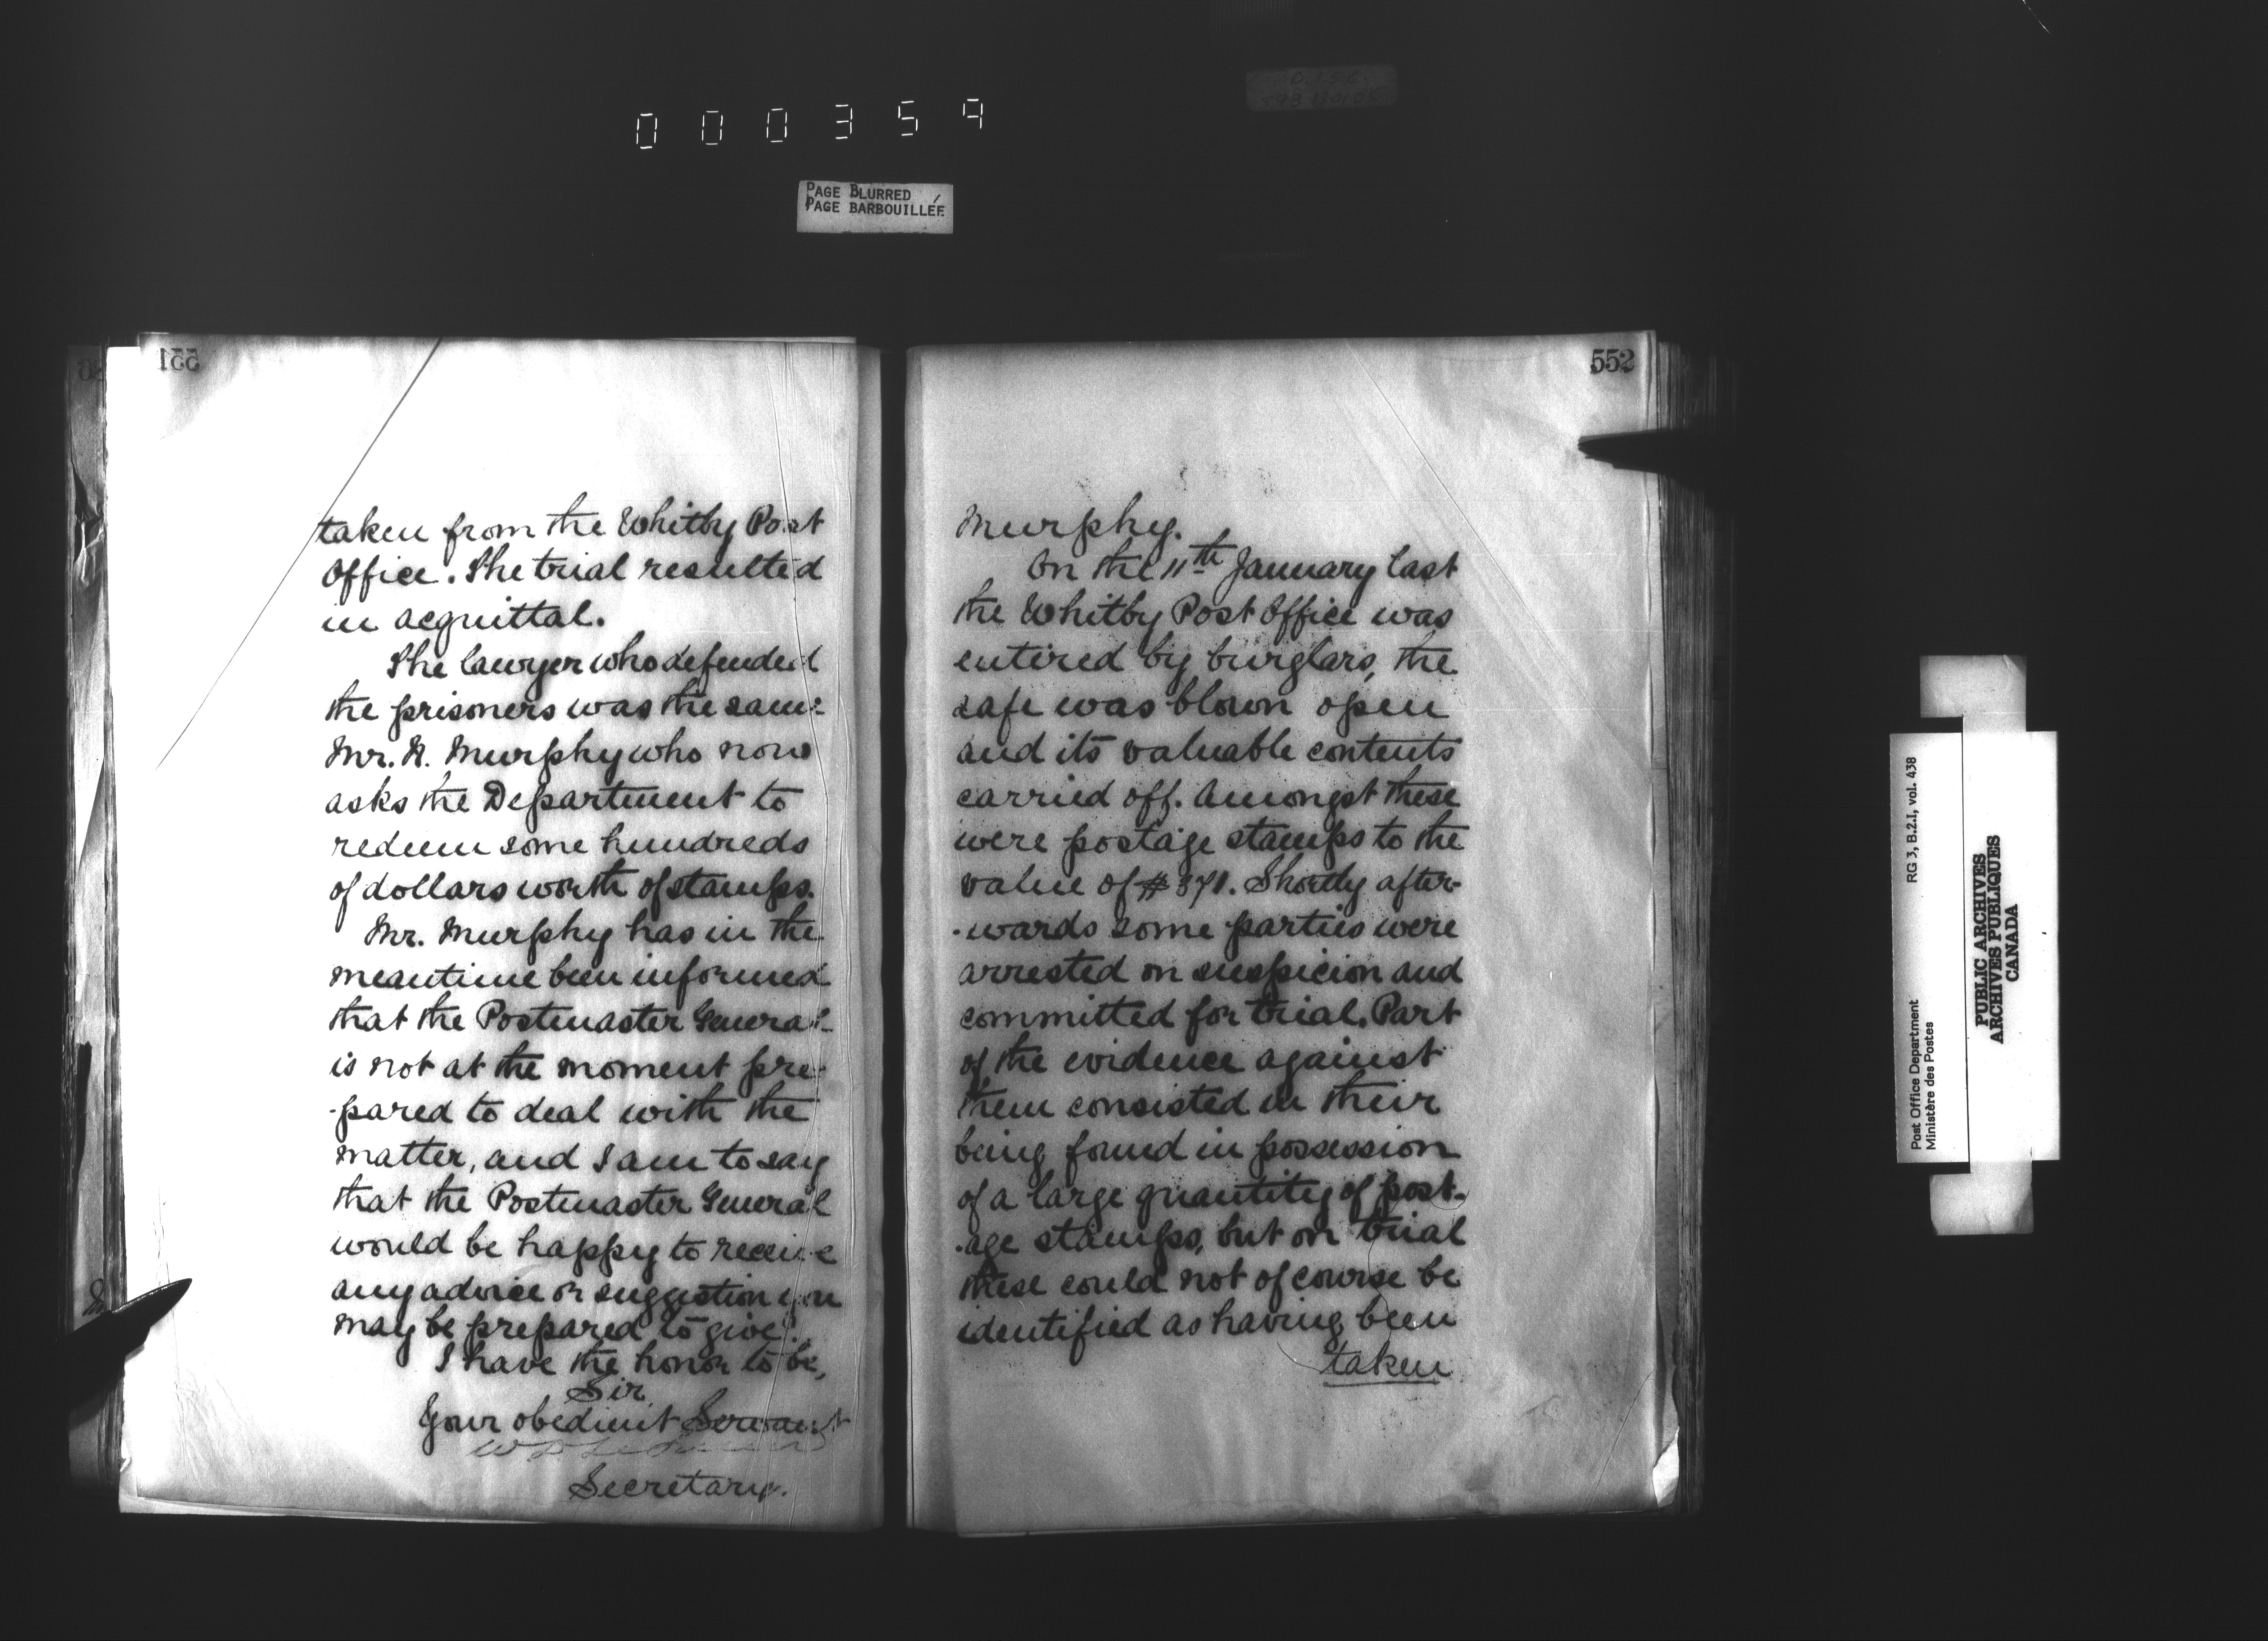 000359
PAGE BLURRED
PAGE BARBOUILLÉE
551
taken from the Whitby Post
Office. The trial resulted
in acquittal.
The lawyer who defended
the prisoners was the same
Mr. N. Murphy who now
asks the Department to
redeem some hundreds
of dollars worth of stamps.
Mr. Murphy has in the
meantime been informed
that the Postmaster General
is not at the moment pre-
-pared to deal with the
matter, and I am to say
that the Postmaster General
would be happy to receive
any advice or suggestion you
may be prepared to give.
I have the honor to be,
Sir
Your obedient Servant
Secretary.
552
Murphy.
On the 11th January last
the Whitby Post Office was
entired by burglars, the
safe was blown open
and its valuable contents
carried off. Amongst these
were postage stamps to the
value of $371. Shortly after-
-wards some parties were
arrested on suspicion and
committed for trial. Part
of the evidence against
them consisted in their
being found in possession
of a large quantity of post-
-age stamps, but on trial
these could not of course be
identified as having been
taken
RG 3, B.2.1, vol. 438
Post Office Department
Ministère des Postes
PUBLIC ARCHIVES
ARCHIVES PUBLIQUES
CANADA